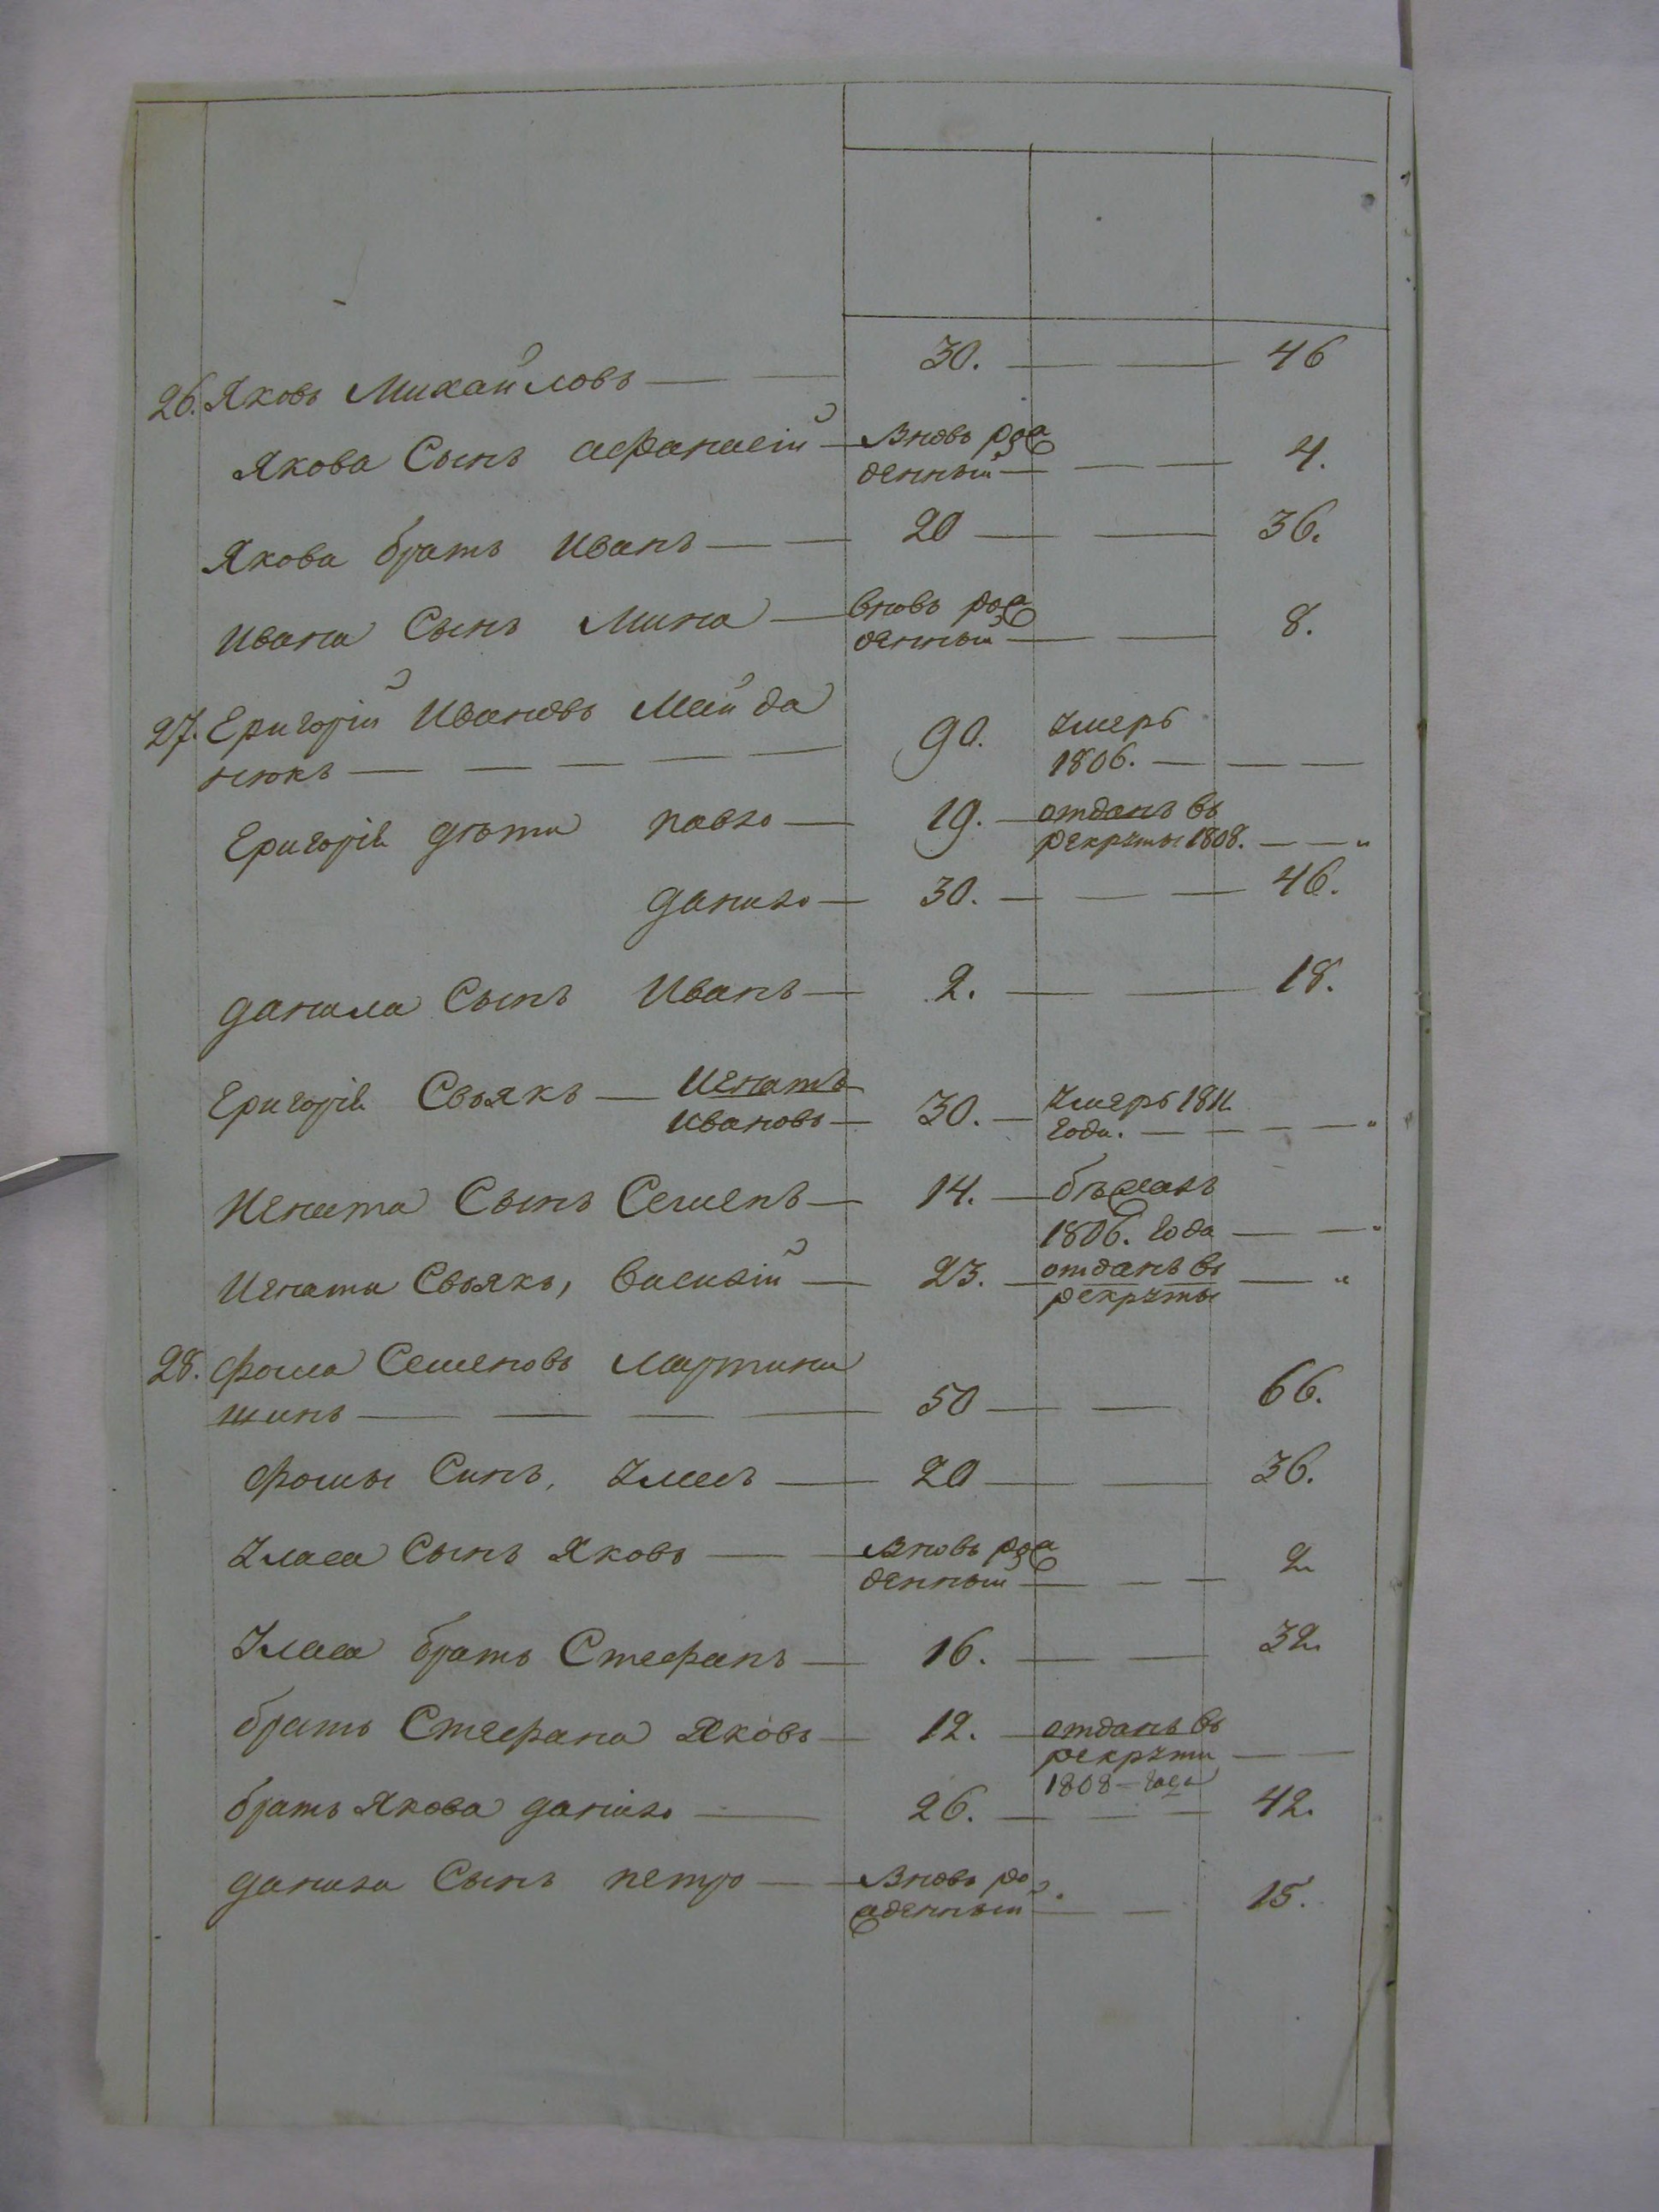 26. Яковъ Михайловъ — — 30. — — 46
Якова Сынъ Афанасій — Вновь рож
денный — — — 4.
Якова братъ Иванъ — — 20 — — 36.
Ивана Сынъ Мина — вновь рож
денный — — 8.
27. Григорій Ивановъ Майда
нюкъ — — — — — 90. умеръ
1806. — — —
Григорія дѣти павло — 19. — отданъ въ
рекруты 1808. — — "
данило — 30. — — — 46.
данила Сынъ Иванъ — 2. — — 18.
Григорія Своякъ — Игнатъ
Ивановъ — 30. — умеръ 1811
года. — — — — "
Игната Сынъ Семенъ — 14. — бѣжалъ
1806. года — — "
Игната Своякъ, Василій — 23. — отданъ въ
рекруты — "
28. Фома Семеновъ Мартини
шинъ — — — — 50 — — 66.
Фомы Синъ, Уласъ — 20 — — 36.
Уласа Сынъ Яковъ — — Вновь рож
денный — — — 2
Уласа братъ Стефанъ — 16. — — 32
братъ Стефана Яковъ — 12. — отданъ въ
рекрути — —
1808 — года
братъ Якова даніло — 26. — — — 42.
данила Сынъ петро — Вновь ро
жденный — — 15.